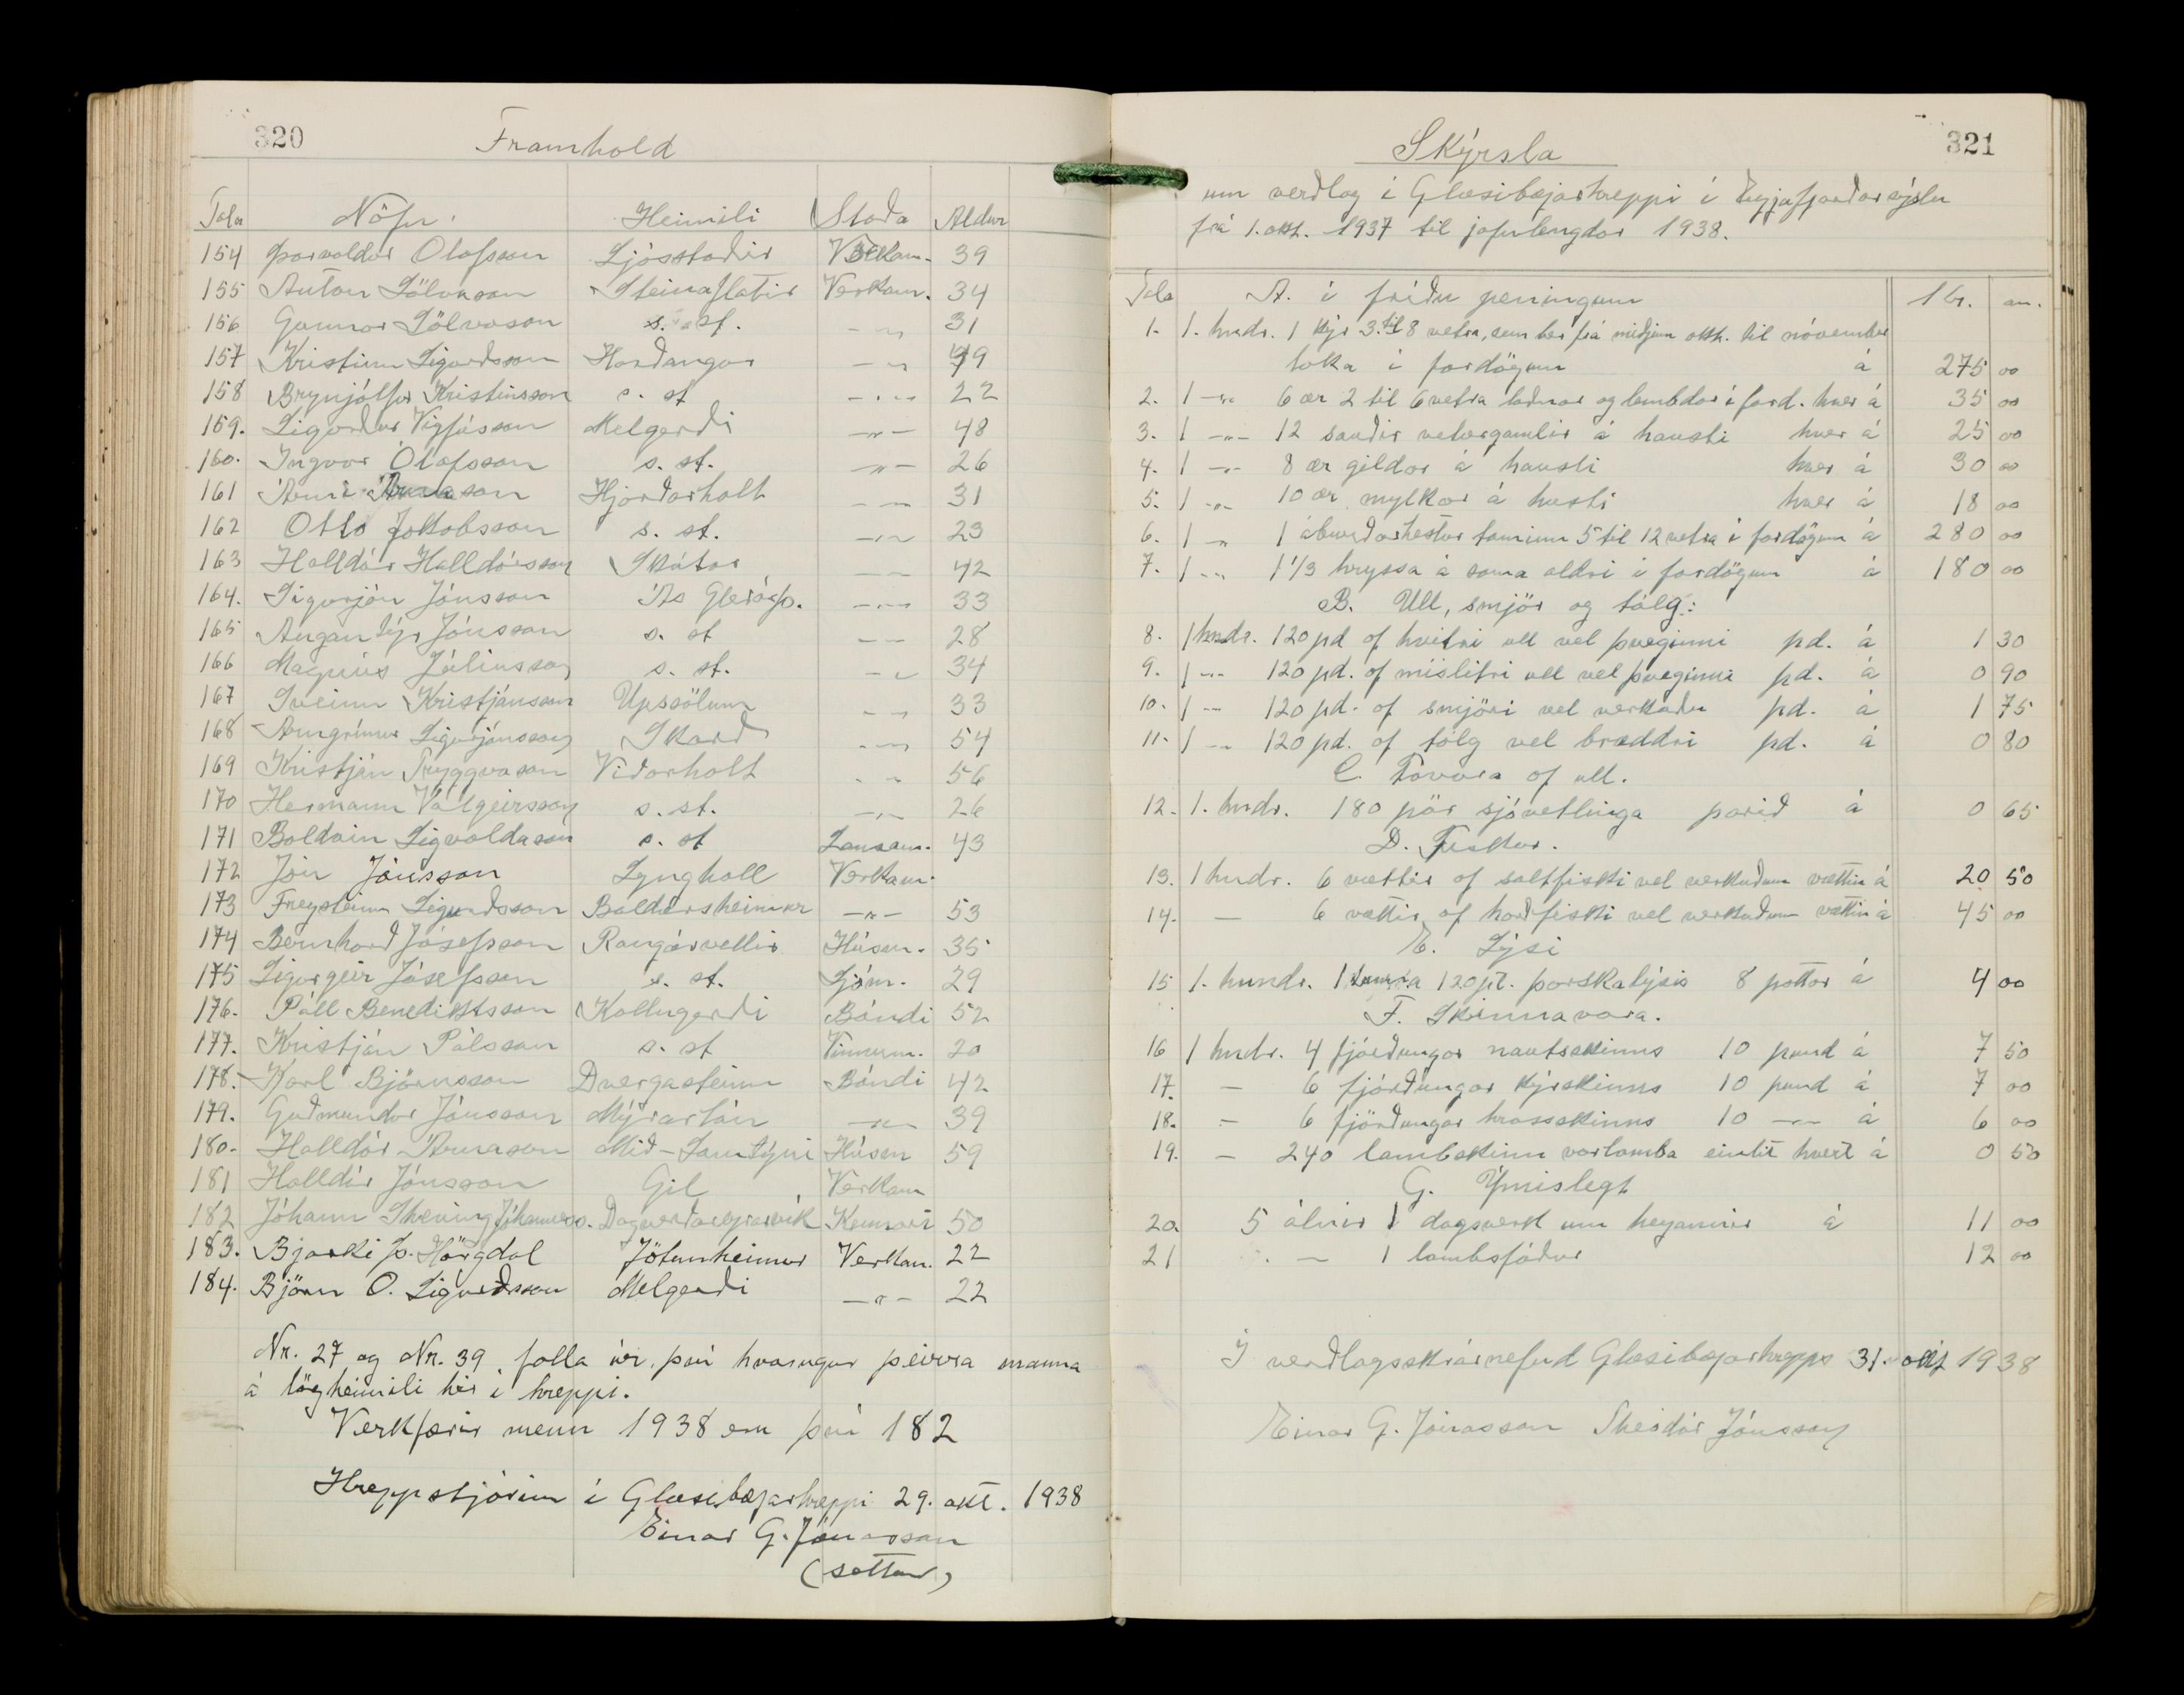 320
Framhold
Tala Nöfn. Heimili Staða Aldur
154 Þorvaldur Olafsson Ljósstaðir Verkam. 39
155 Anton Sölvason Steinaflatir Verkam. 34
156 Gunnar Sölvason s. st. -"- 31
157 Kristinn Sigurðsson Harðangur -"- 49
158 Brynjólfur Kristinsson s. st -"- 22
159. Sigurður Vigfússon Melgerði -"- 48
160. Ingvar Ólafsson s. st. -"- 26
161 Árni Árnason Hjarðarholt -"- 31
162 Otto Jakobsson s. st. -"- 23
163 Halldór Halldórsson Skútar -"- 42
164. Sigurjón Jónsson Ás Glerárþ. -"- 33
165 Angantýr Jónsson s. st -"- 28
166 Magnús Júlíusson s. st. -"- 34
167 Sveinn Kristjánsson Upsölum -"- 33
168 Arngrímur Sigurjónsson Skarð -"- 54
169 Kristján Tryggvason Viðarholt -"- 56
170 Hermann Valgeirsson s. st. -"- 26
171 Baldvin Sigvaldason s. st Lausam. 43
172 Jón Jónsson Lyngholl Verkam.
173 Freysteinn Sigurðsson Baldursheimur -"- 53
174 Bernharð Jósefsson Rangárvellir Húsm. 35
175 Sigurgeir Jósefsson s. st. Sjóm. 29
176. Páll Benediktsson Kollugerði Bóndi 52
177. Kristján Pálsson s. st Vinnum. 20
178. Karl Björnsson Dvergasteinn Bóndi 42
179. Guðmundur Jónsson Mýrarlón -"- 39
180. Halldór Árnason Mið-Samtýni Húsm 59
181 Halldór Jónsson Gil Verkam
182 Jóhann Skening Jóhanness. Dagverðareyrarvík Kennari 50
183. Bjarki Þ. Hörgdal Jötunheimur Verkam. 22
184. Björn O. Sigurðsson Melgerði -"- 22
Nr. 27 og Nr. 39 falla úr, því hvorugur þeirra manna
á lögheimili hér í hreppi.
Verkfærir menn 1938 eru því 182
Hreppstjórinn í Glæsibæjarhreppi 29. okt. 1938
Einar G. Jónasson
(settur)
321
Skýrsla
um verðlag í Glæsibæjarhreppi í Eyjafjarðarsýslu
frá 1. okt. 1937 til jafnlengdar 1938.
Tala A. í fríðu peningum Kr. au.
1. 1. hndr. 1 kýr 3. til 8 vetra, sem ber frá miðjum okt. til nóvember
loka í fardögum á 275 00
2. 1 -"- 6 ær 2 til 6 vetra loðnar og lembdar í fard. hver á 35 00
3. 1 -"- 12 sauðir veturgamlir á hausti hver á 25 00
4. 1 -"- 8 ær geldar á hausti hver á 30 00
5. 1 -"- 10 ær mylkar á husti hver á 18 00
6. 1 -"- 1 áburðarhestur taminn 5 til 12 vetra í fardögum á 280 00
7. 1 -"- 1 1/3 hryssa á sama aldri í fardögum á 180 00
B. Ull, smjör og tólg:
8. 1 hndr. 120 pd af hvítri ull vel þveginni pd. á 1 30
9. 1 -"- 120 pd. af mislitri ull vel þveginni pd. á 0 90
10. 1 -"- 120 pd. af smjöri vel verkuðu pd. á 1 75
11. 1 -"- 120 pd. af tólg vel bræddri pd. á 0 80
C. Tóvara af ull.
12. 1. hndr. 180 pör sjóvetlinga parið á 0 65
D. Fiskur.
13. 1 hndr. 6 vættir af saltfiski vel verkuðum vættin á 20 50
14. — 6 vættir af harðfiski vel verkuðum vættin á 45 00
E. Lýsi
15 1. hundr. 1 tunna 120 pt. þorskalýsis 8 pottar á 4 00
F. Skinnavara.
16 1 hndr. 4 fjórðungar nautskinns 10 pund á 7 50
17. — 6 fjórðungar kýrskinns 10 pund á 7 00
18. — 6 fjórðungar hrossskinns 10 -"- á 6 00
19. — 240 lambskinn vorlamba einlit hvert á 0 50
G. Ýmislegt
20 5 álnir 1 dagsverk um heyannir á 11 00
21 — 1 lambsfóður 12 00
Í verðlagsskrárnefnd Glæsibæjarhrepps 31. okt 1938
Einar G. Jónasson Steidór Jónsson